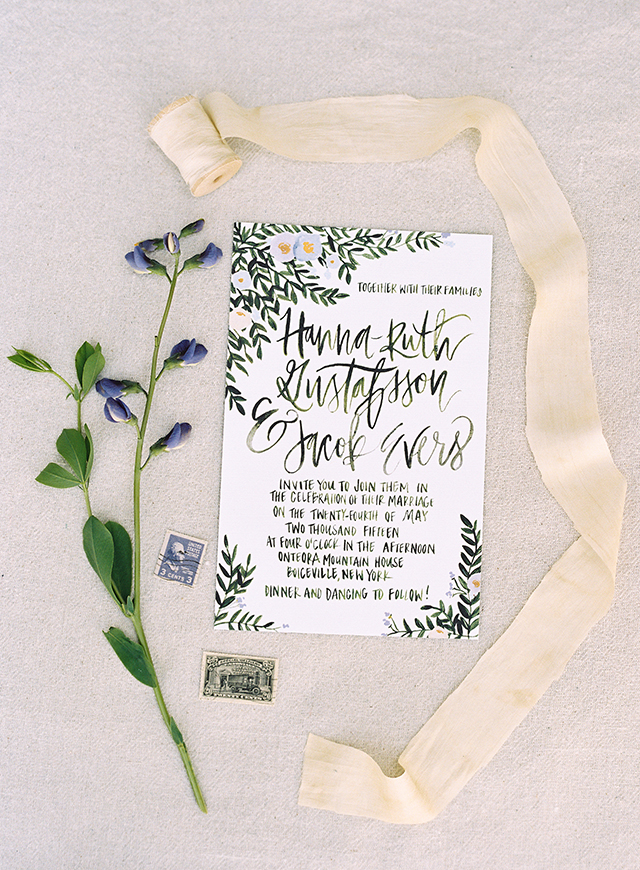 TOGETHER WITH THEIR FAMILIES
Hanna-Ruth
Gustafsson
& Jacob Evers
INVITE YOU TO JOIN THEM IN
THE CELEBRATION OF THEIR MARRIAGE
ON THE TWENTY-FOURTH OF MAY
TWO THOUSAND FIFTEEN
AT FOUR O'CLOCK IN THE AFTERNOON
ONTEORA MOUNTAIN HOUSE
BOICEVILLE, NEW YORK
DINNER AND DANCING TO FOLLOW!
3 CENTS 3